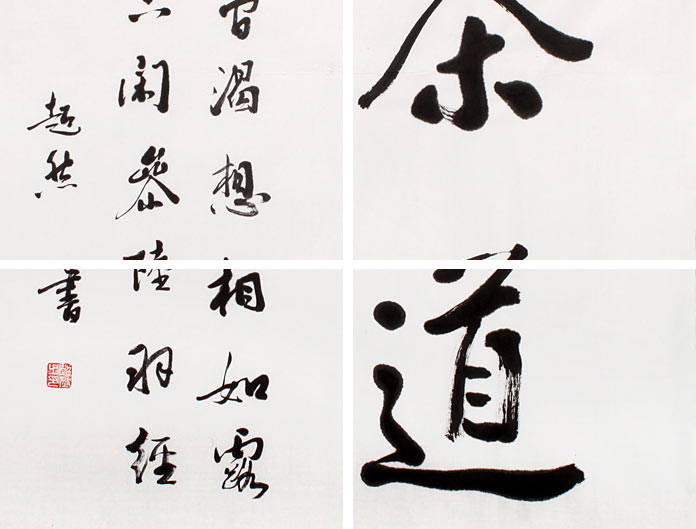 茶道
渴想相如露
閑參陸羽經
超然書